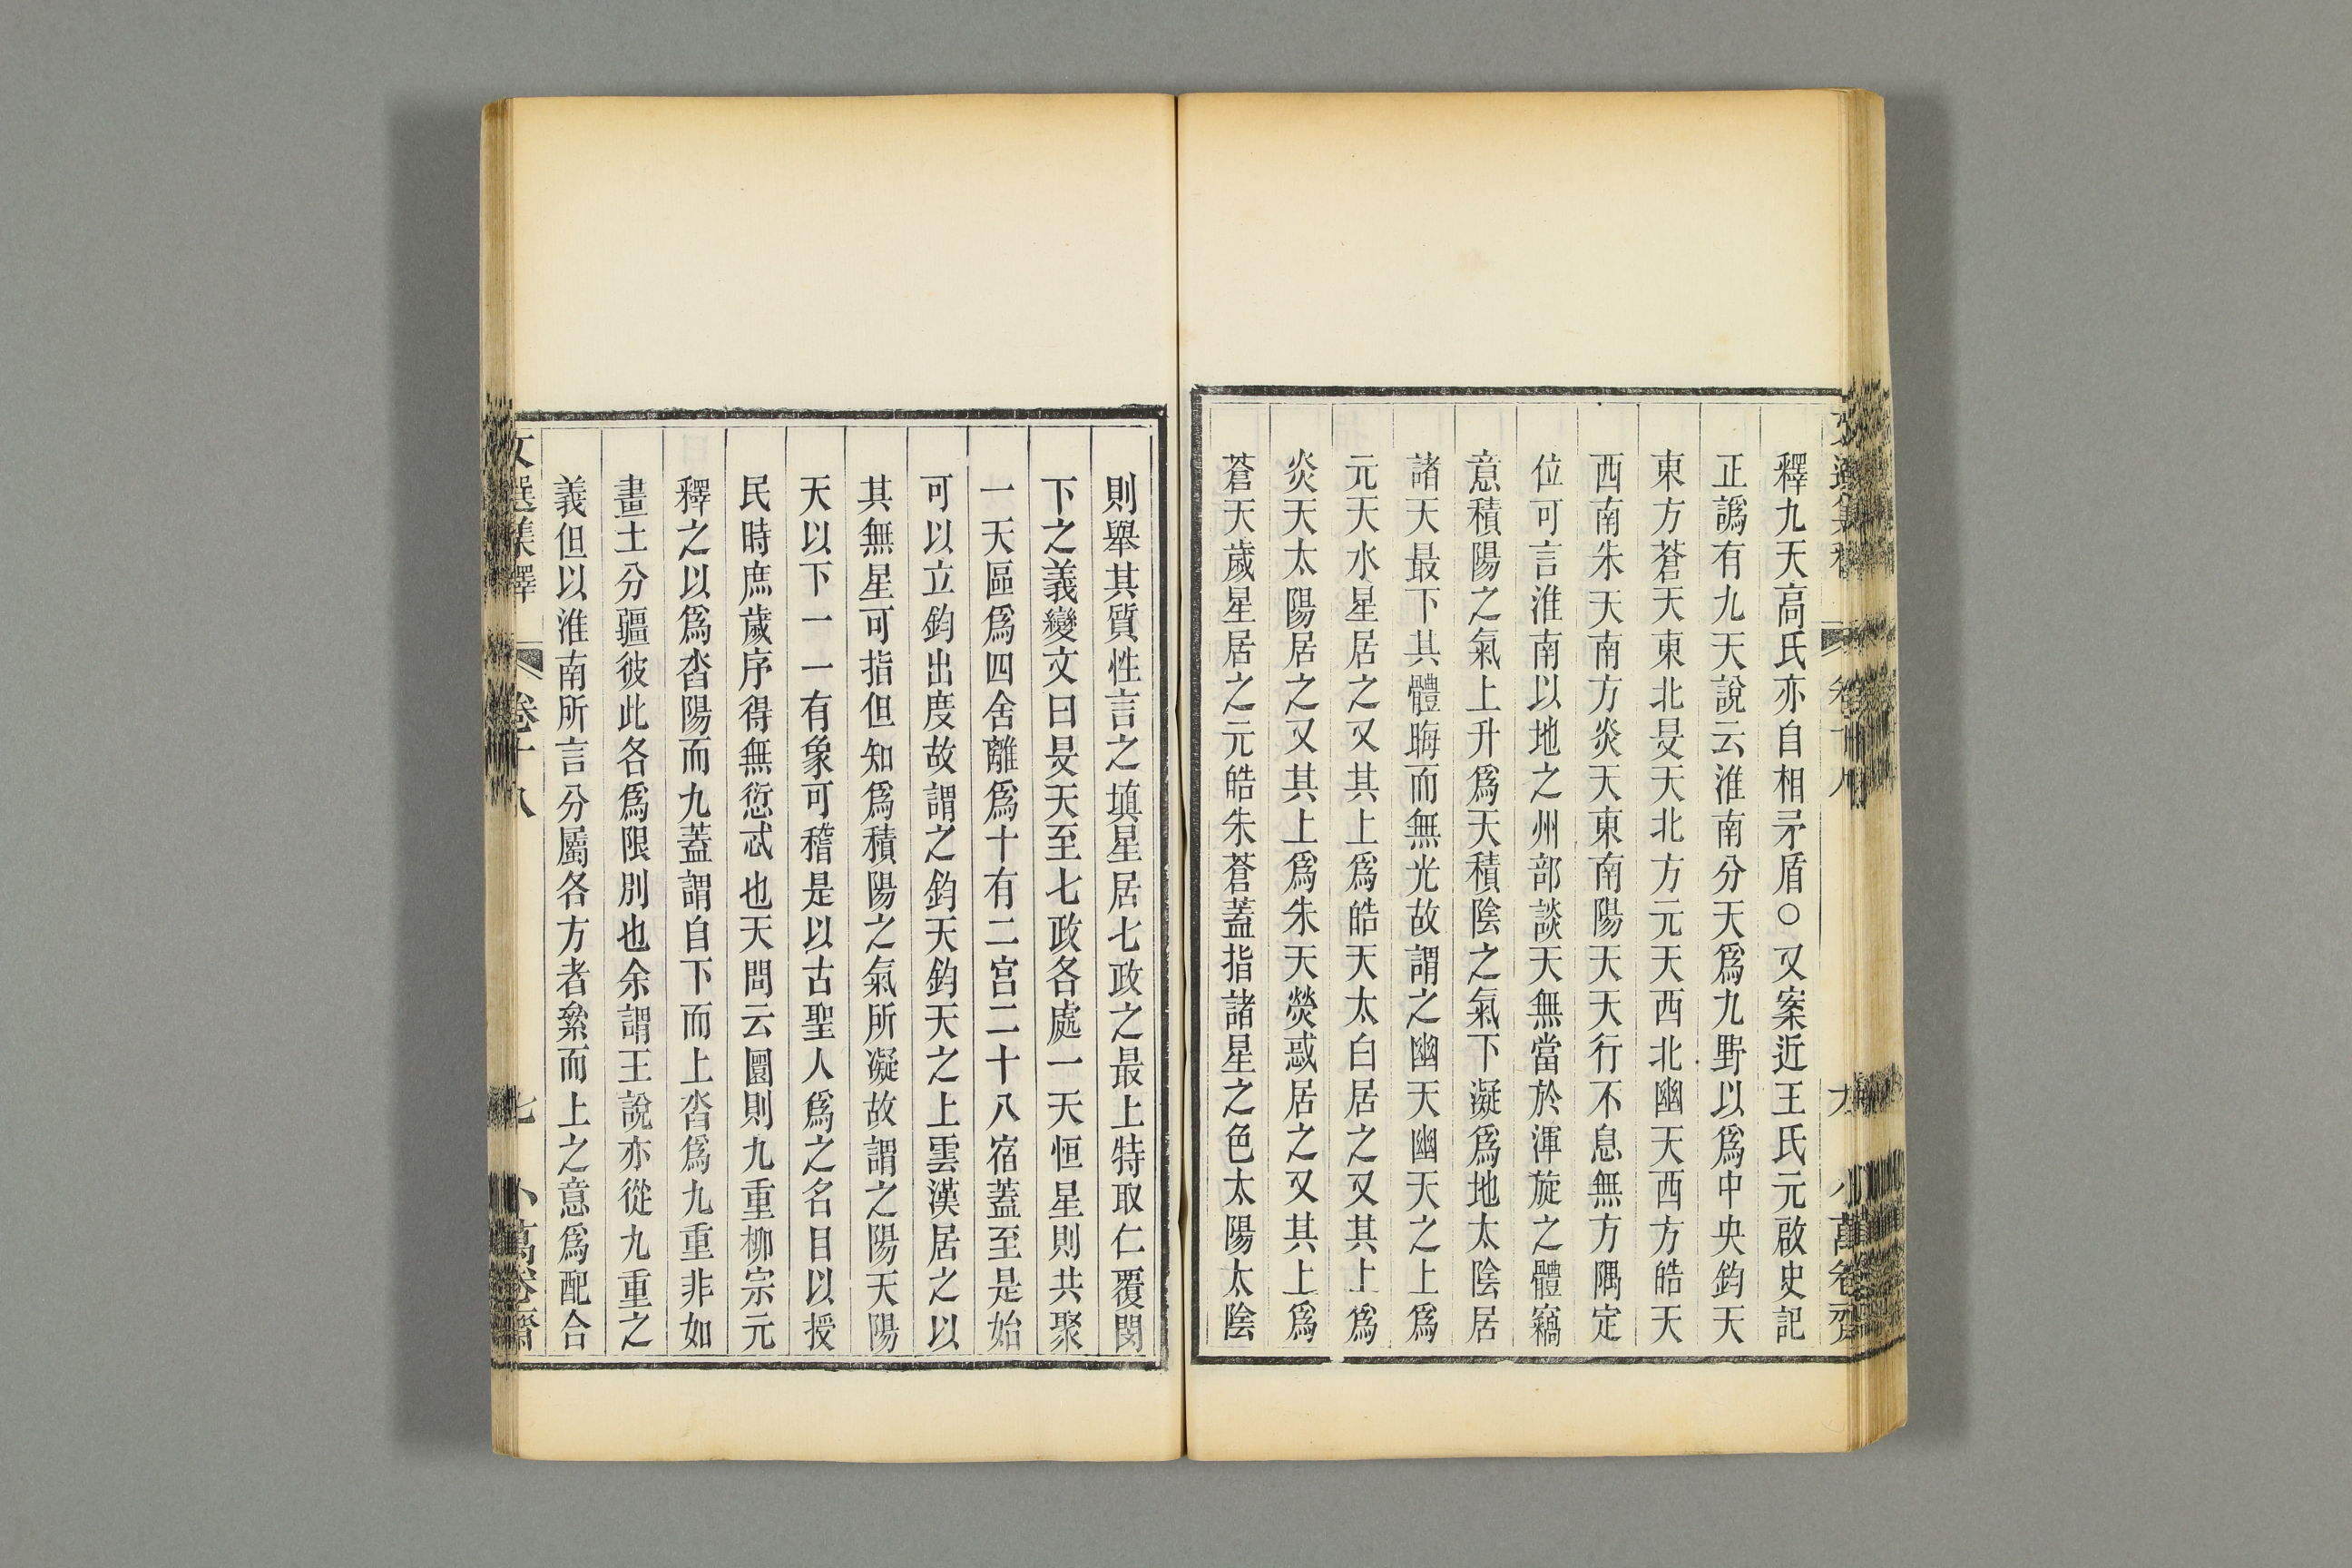 釋九天高氏亦自相矛盾○又案近王氏元啟史記
正譌有九天說云淮南分天爲九野以爲中央鈞天
東方蒼天東北旻天北方元天西北幽天西方皓天
西南朱天南方炎天東南陽天天行不息無方隅定
位可言淮南以地之州部談天無當於渾旋之體竊
意積陽之氣上升爲天積陰之氣下凝爲地太陰居
諸天最下其體晦而無光故謂之幽天幽天之上爲
元天水星居之又其上爲皓天太白居之又其上爲
炎天太陽居之又其上爲朱天熒惑居之又其上爲
蒼天歲星居之元皓朱蒼蓋指諸星之色太陽太陰
則舉其質性言之填星居七政之最上特取仁覆閔
下之義變文曰旻天至七政各處一天恒星則共聚
一天區爲四舍離爲十有二宮二十八宿蓋至是始
可以立鈞出度故謂之鈞天鈞天之上雲漢居之以
其無星可指但知爲積陽之氣所凝故謂之陽天陽
天以下一一有象可稽是以古聖人爲之名目以授
民時庶歲序得無愆忒也天問云圜則九重柳宗元
釋之以爲沓陽而九蓋謂自下而上沓爲九重非如
畫土分疆彼此各爲限別也余謂王說亦從九重之
義但以淮南所言分屬各方者絫而上之意爲配合
文選集釋 卷十八 七 小萬卷齋